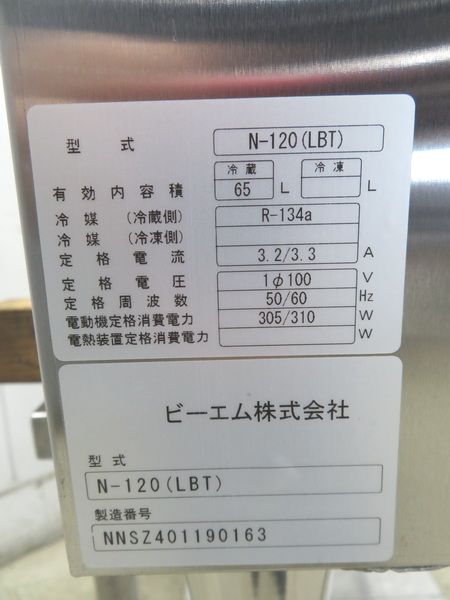 型式 N-120(LBT)
冷蔵 冷凍
有効内容積 65 L L
冷媒 (冷蔵側) R-134a
冷媒 (冷凍側)
定格電流 3.2/3.3 A
定格電圧 1φ100 V
定格周波数 50/60 Hz
電動機定格消費電力 305/310 W
電熱装置定格消費電力 W
ビーエム株式会社
型式
N-120(LBT)
製造番号
NNSZ401190163